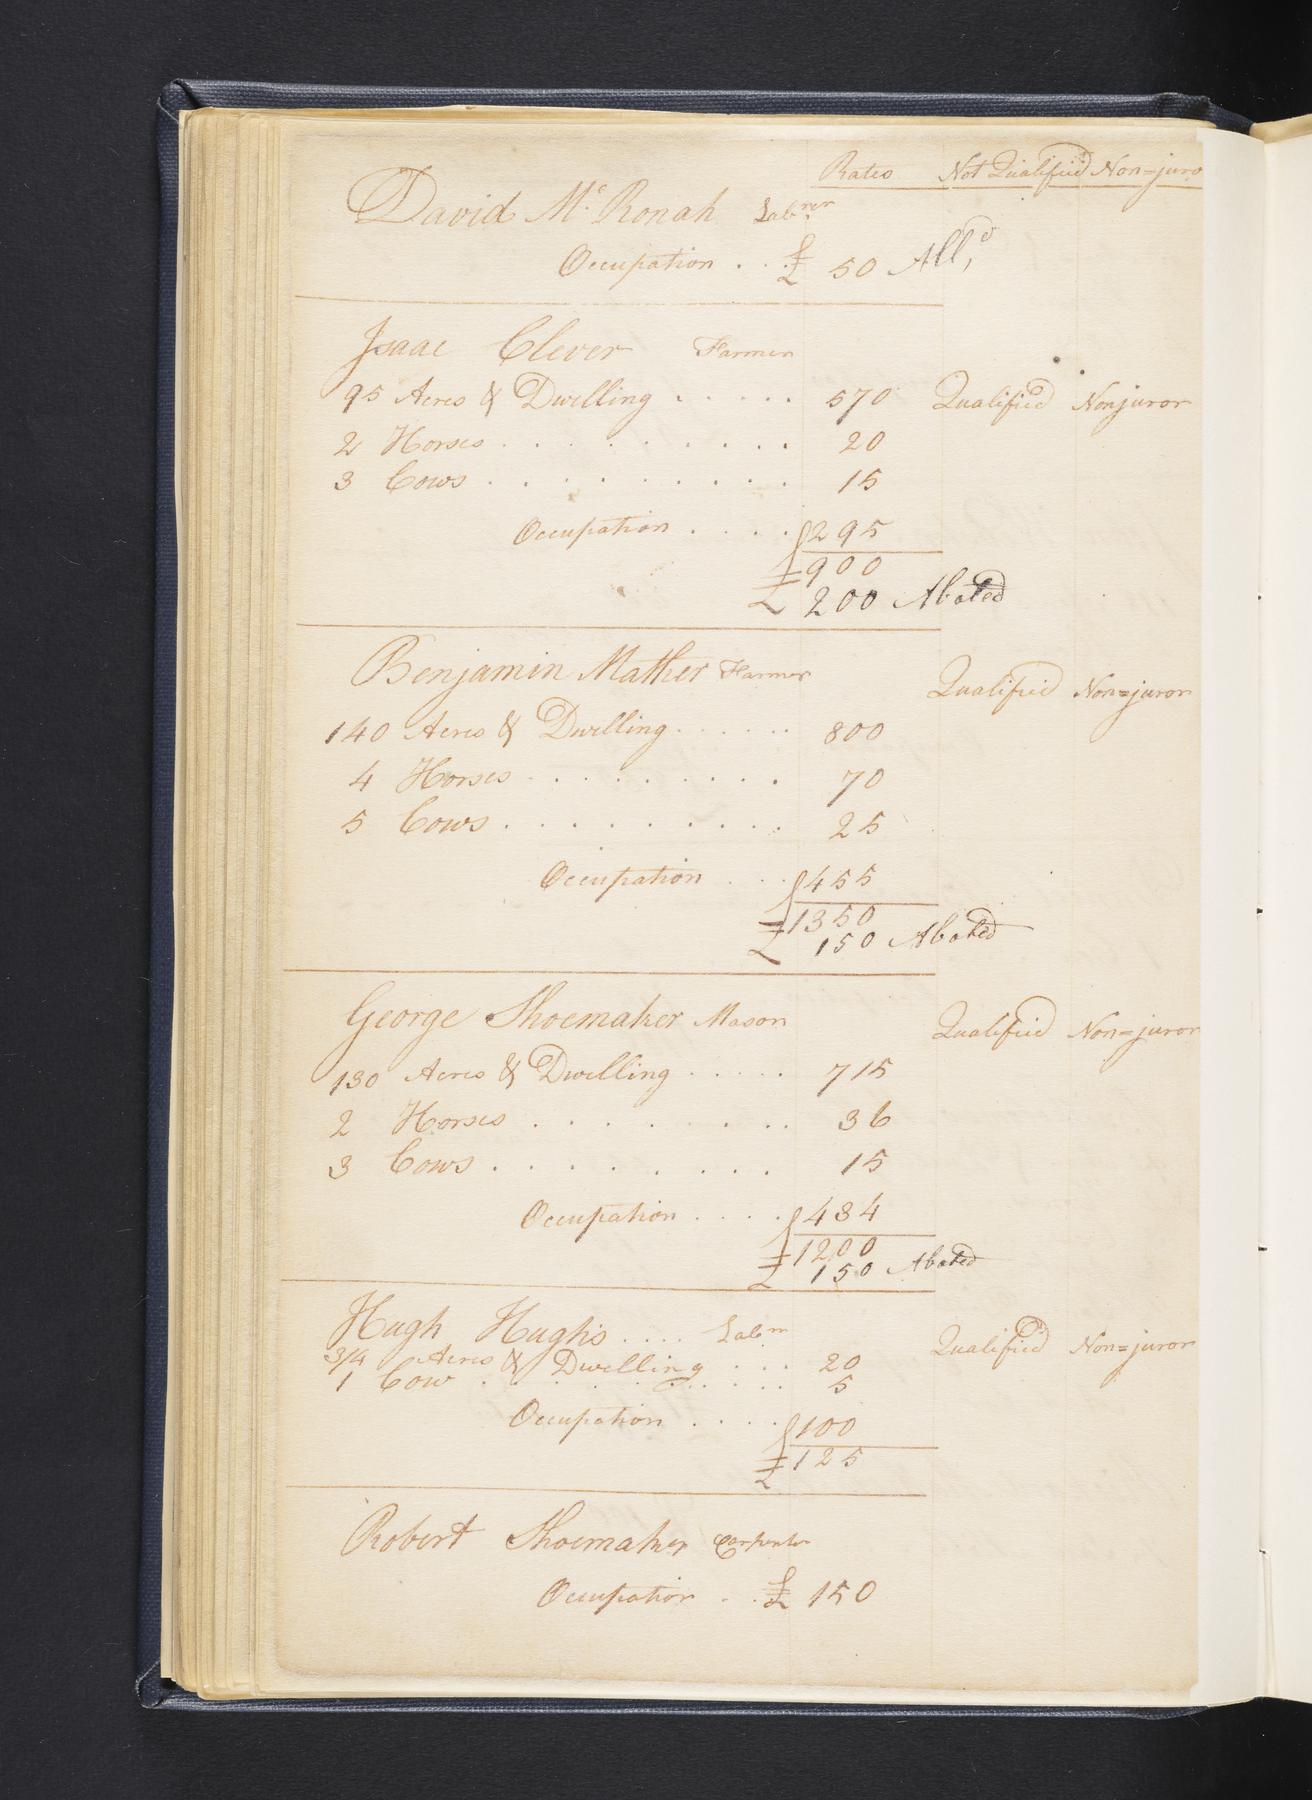 Rates Not Qualified Non=juro
David Mc. Ronah Labrer
Occupation . . . £ 50 All,d
Isaac Clever Farmer
95 Acres & Dwelling . . . . . 570 Qualified Nonjuror
2 Horses . . . . . . . . . 20
3 Cows . . . . . . . . . . 15
Occupation . . . . 295
£ 900
£ 200 Abated
Benjamin Mather Farmer Qualified Non=juror
140 Acres & Dwelling . . . . . . 800
4 Horses . . . . . . . . . 70
5 Cows . . . . . . . . . . 25
Occupation . . . 455
£ 1350
150 Abated
George Shoemaker Mason Qualified Non=juror
130 Acres & Dwelling . . . . . 715
2 Horses . . . . . . . . . 36
3 Cows . . . . . . . . . 15
Occupation . . . . 434
£ 1200
£ 150 Abated
Hugh Hughs . . . . Labrr Qualified Non=juror
3/4 Acres & Dwelling . . . 20
1 Cow . . . . . . . . . . 5
Occupation . . . . 100
£ 125
Robert Shoemaker Carpenter
Occupation . . £ 150